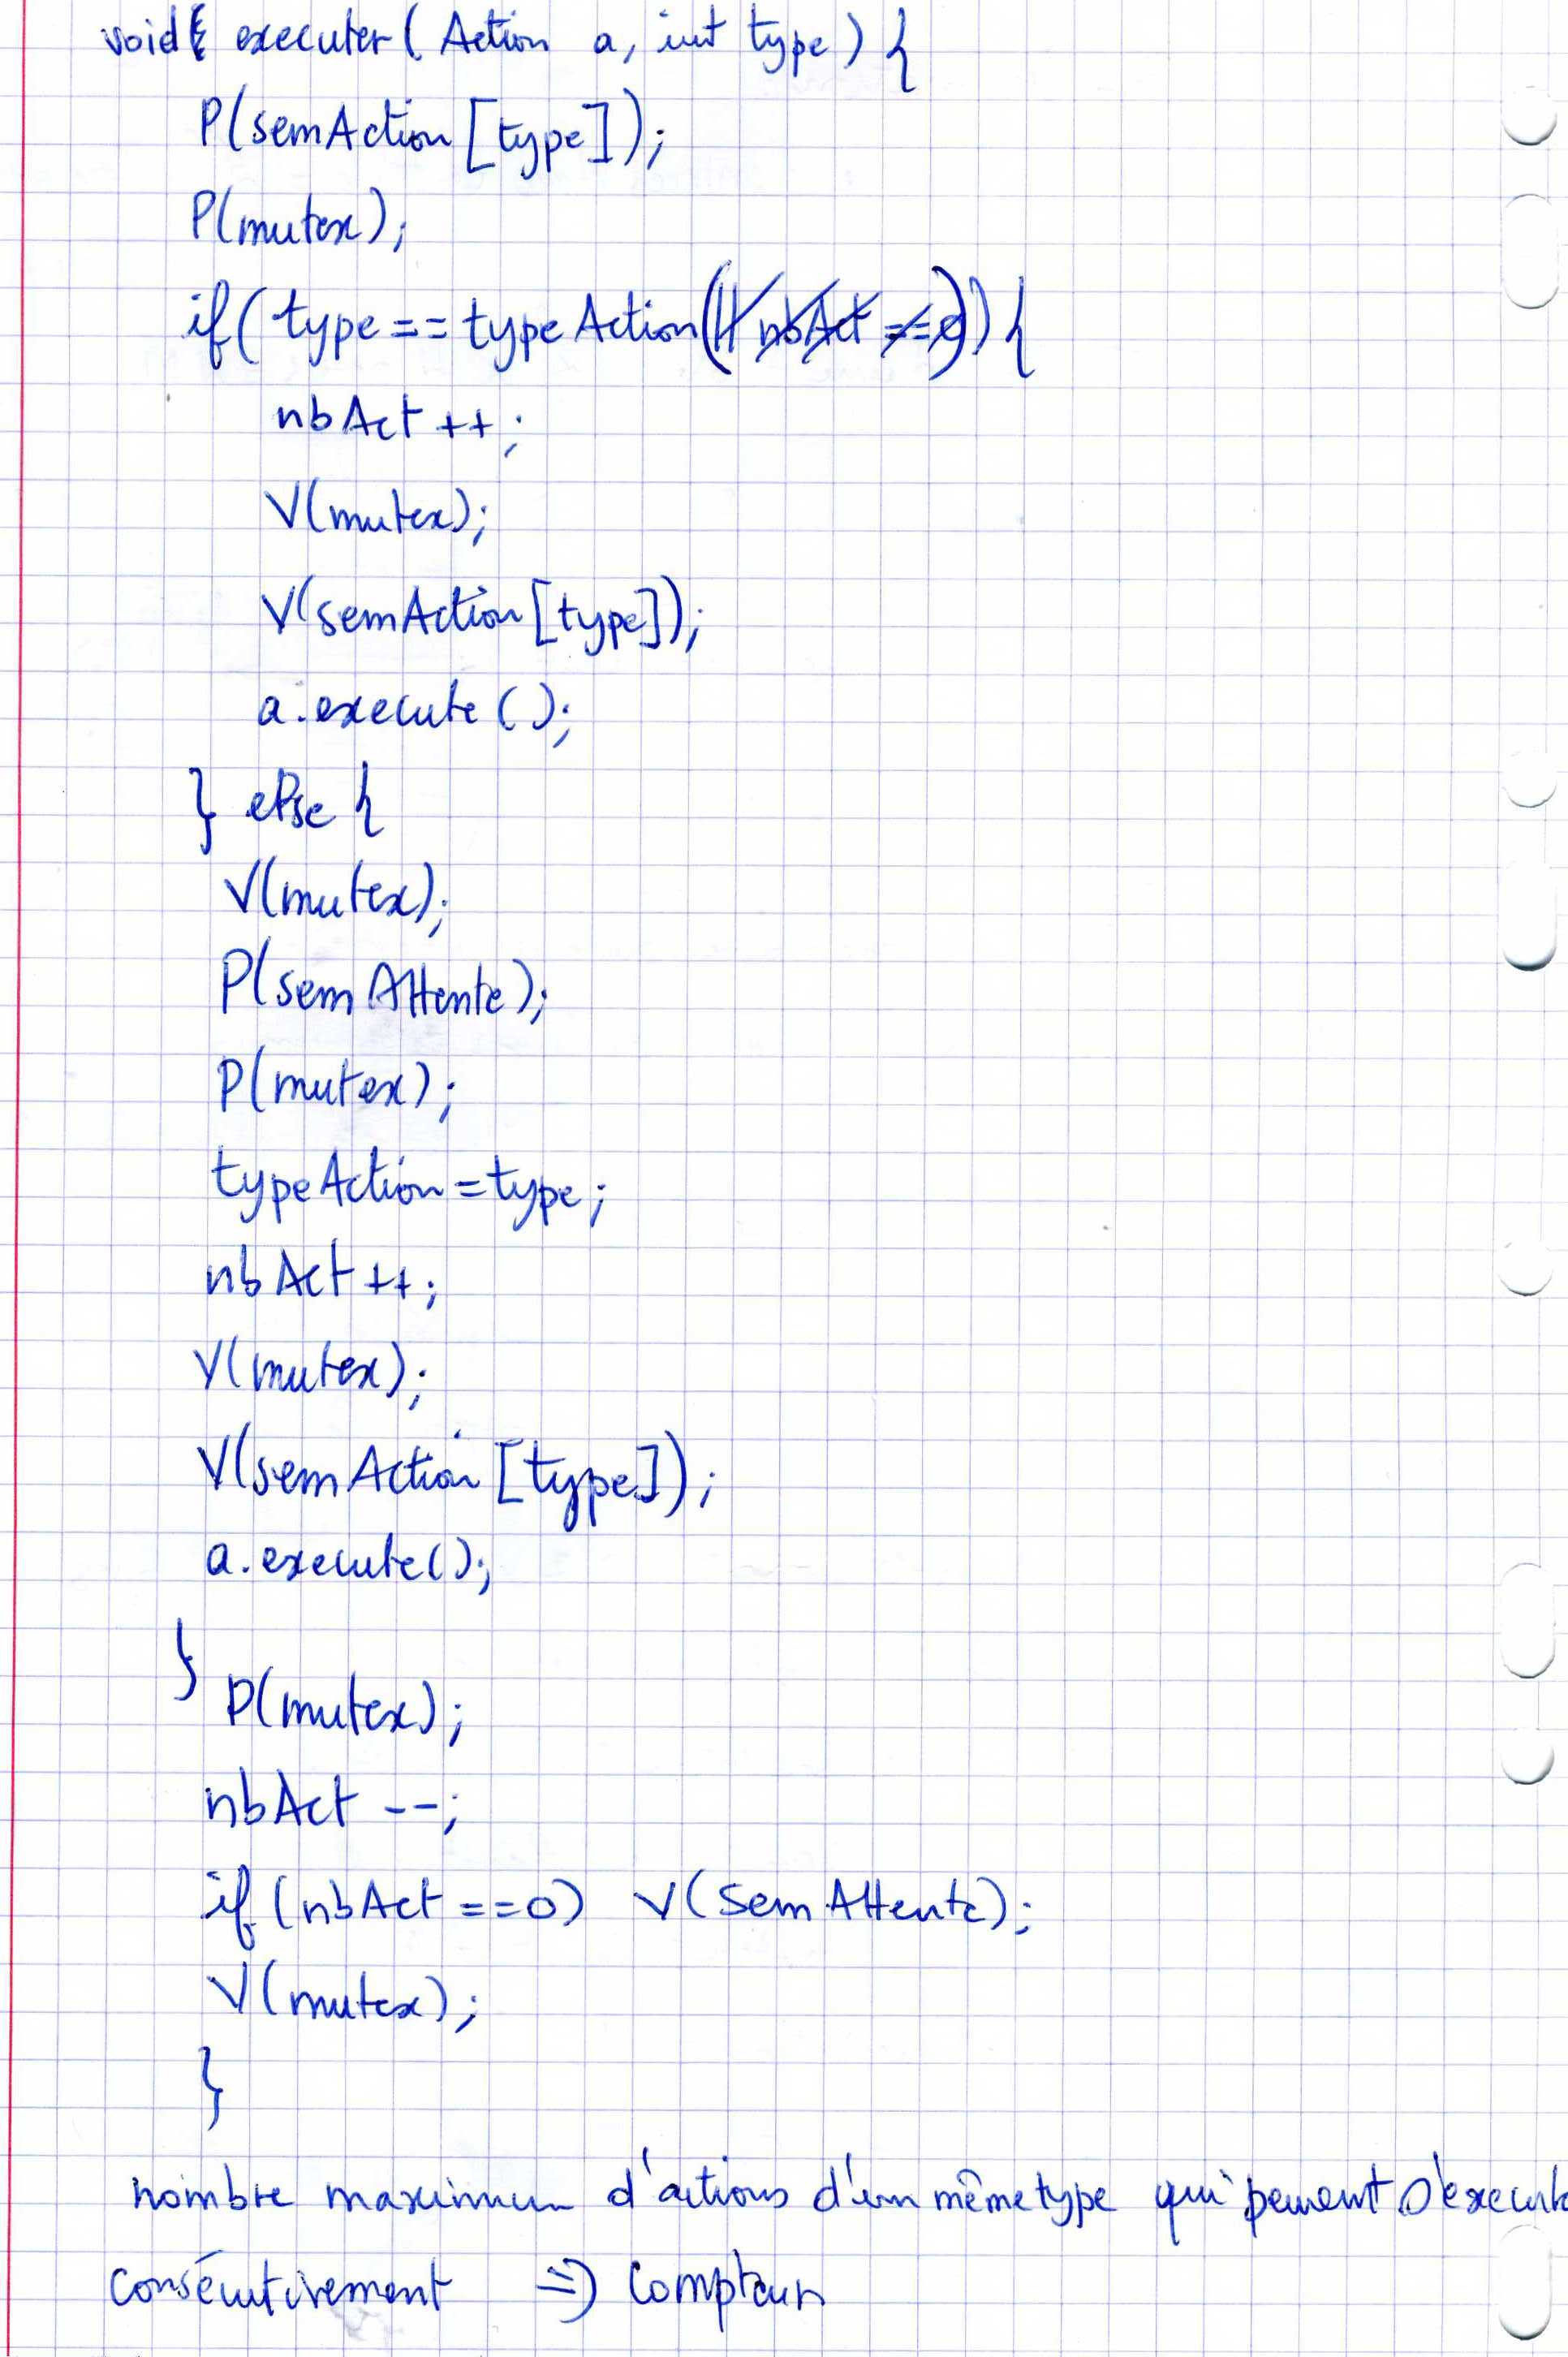 void executer(Action a, int type) {
P(semAction[type]);
P(mutex);
if(type == typeAction(|| nbAct == 0)) {
nbAct ++;
V(mutex);
V(semAction[type]);
a.execute();
} else {
V(mutex);
P(semAttente);
P(mutex);
typeAction = type;
nbAct ++;
V(mutex);
V(semAction[type]);
a.execute();
}
P(mutex);
nbAct --;
if (nbAct == 0) V(semAttente);
V(mutex);
}
nombre maximum d'actions d'un même type qui peuvent s'execute
consécutivement => compteur